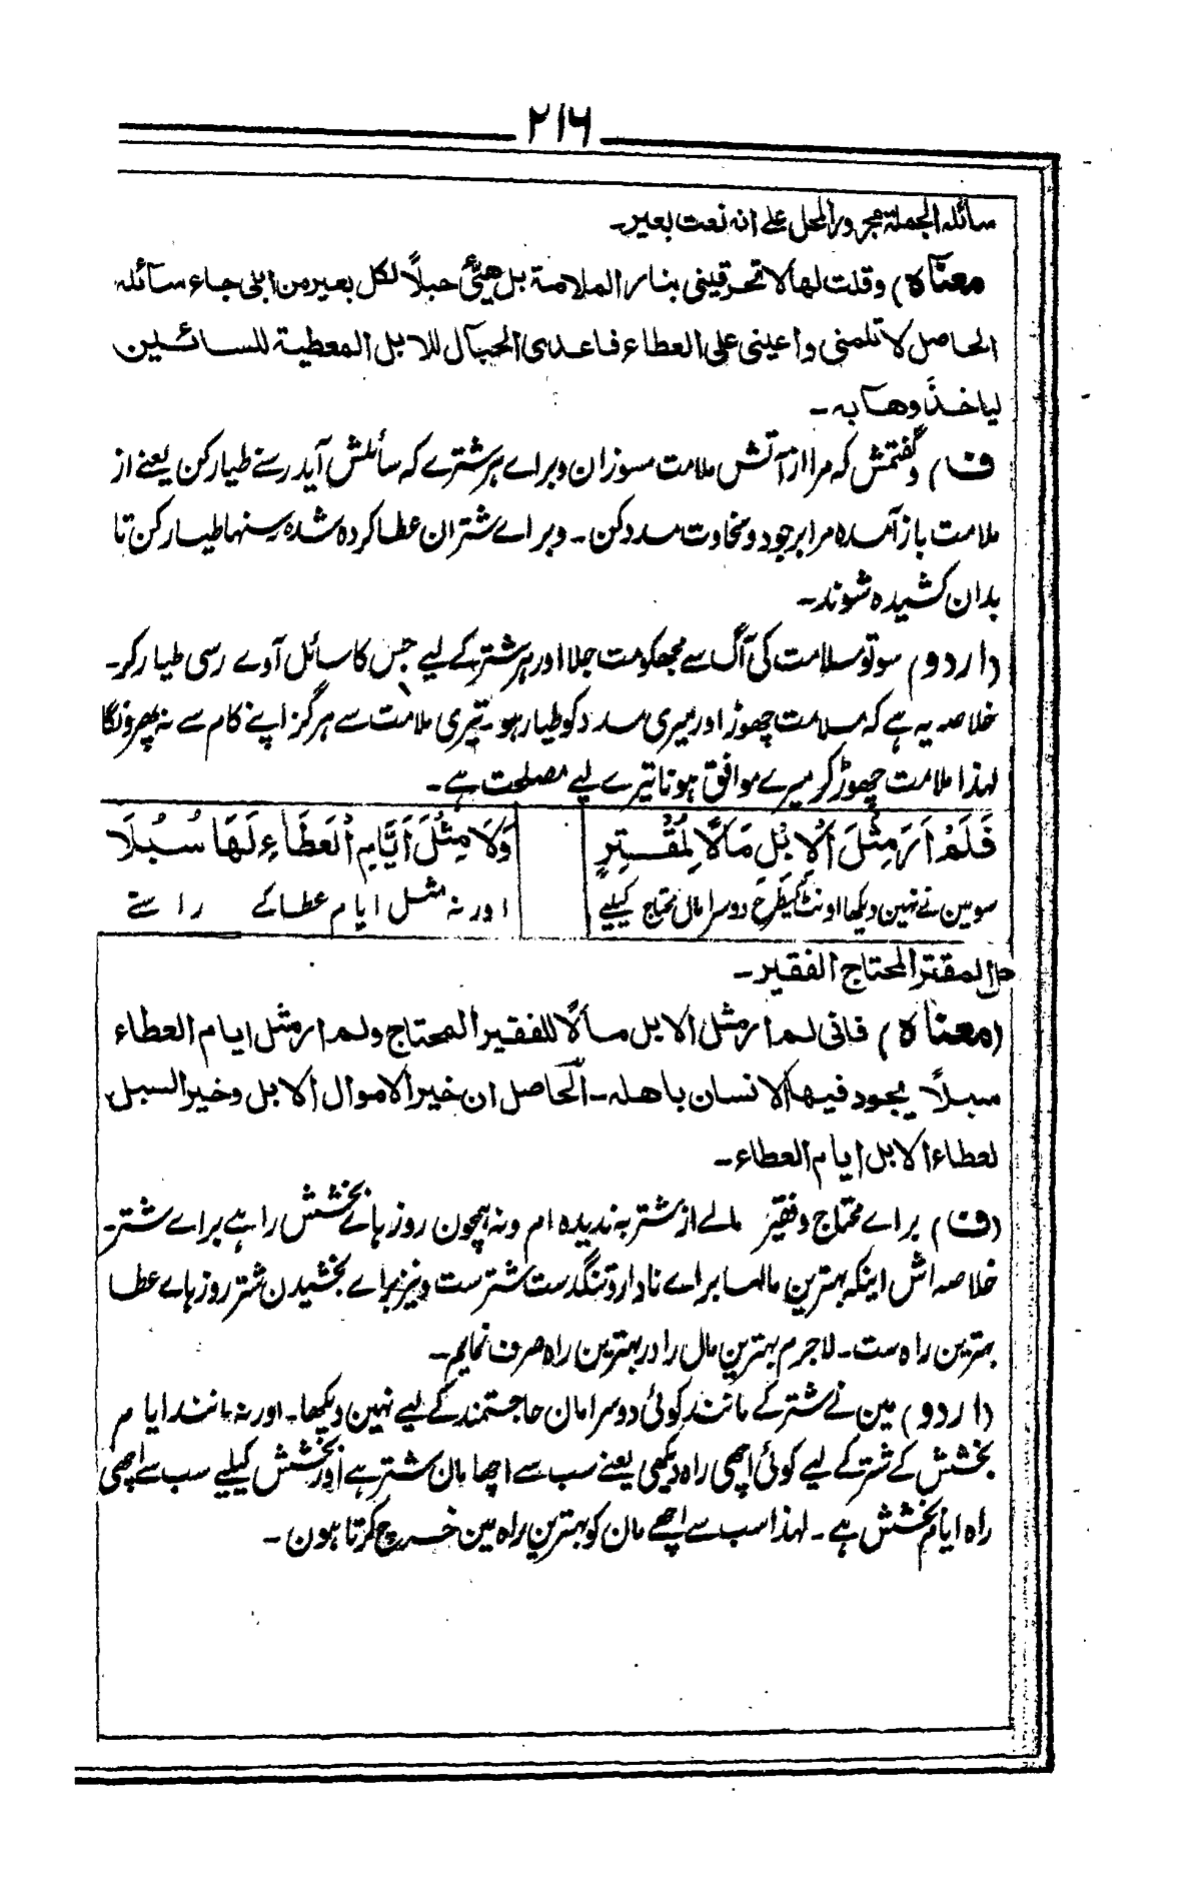 ۲۱۶
سائله الجملة مجرور المحل علے انه نعت بعیر۔
معناه) وقلت لها لا تحرقینی بنار الملامة بل هیئی حبلاً لکل بعیر من ابلی جاء سآئله
الحاصل لا تلمنی واعینی علی العطاء فاعدی الحبال للابل المعطیة للسائلین
لیاخذوها به۔
ف) وگفتمش که مرا از آتش ملامت مسوزان و براے ہر شترے که سائلش آید رسنے طیار کن یعنے از
ملامت باز آمده مرا برجود و سخاوت مدد کن۔ و براے شتران عطا کرده شده رسنہا طیار کن تا
بدان کشیده شوند۔
(اردو) سو تو ملامت کی آگ سے مجھکو مت جلا اور ہر شتر کے لیے جس کا سائل آوے رسی طیار کر۔
خلاصہ یہ ہے کہ ملامت چھوڑ اور میری مدد کو طیار ہو۔ تیری ملامت سے ہرگز اپنے کام سے نہ پھرونگا
لہذا ملامت چھوڑ کر میرے موافق ہونا تیرے لیے مصلحت ہے۔
فَلَمْ اَرَ مِثْلَ الْاِبْلِ مَالًا لِمُقْتِرٍ وَلَا مِثْلَ اَیَّامِ الْعَطَاءِ لَهَا سُبُلَا
سو مین نے نہین دیکھا اونٹ کیطرح دوسرا مال محتاج کیلیے اور نہ مثل ایام عطا کے راستے
حل المقتر المحتاج الفقیر۔
(معناه) فانی لم ار مثل الابل مالًا للفقیر المحتاج ولم ار مثل ایام العطاء
سبلاً یجود فیها الانسان باهله۔ الحاصل ان خیر الاموال الابل وخیر السبل
لعطاء الابل ایام العطاء۔
(ف) براے محتاج و فقیر مالے از شتر به ندیده ام و نه ہمچون روز ہاے بخشش راہے براے شتر۔
خلاصه اش اینکه بہترین مالہا براے نادار و تنگدست شترست و نیز براے بخشیدن شتر روز ہاے عطا
بہترین راه ست۔ لاجرم بہترین مال را در بہترین راه صرف نمایم۔
(اردو) مین نے شتر کے مانند کوئی دوسرا مان حاجتمند کے لیے نہین دیکھا۔ اور نہ مانند ایام
بخشش کے شتر کے لیے کوئی اچھی راہ دیکھی یعنے سب سے اچھا مان شتر ہے اور بخشش کیلیے سب سے اچھی
راہ ایام بخشش ہے۔ لہذا سب سے اچھے مان کو بہترین راہ مین خرچ کرتا ہون۔